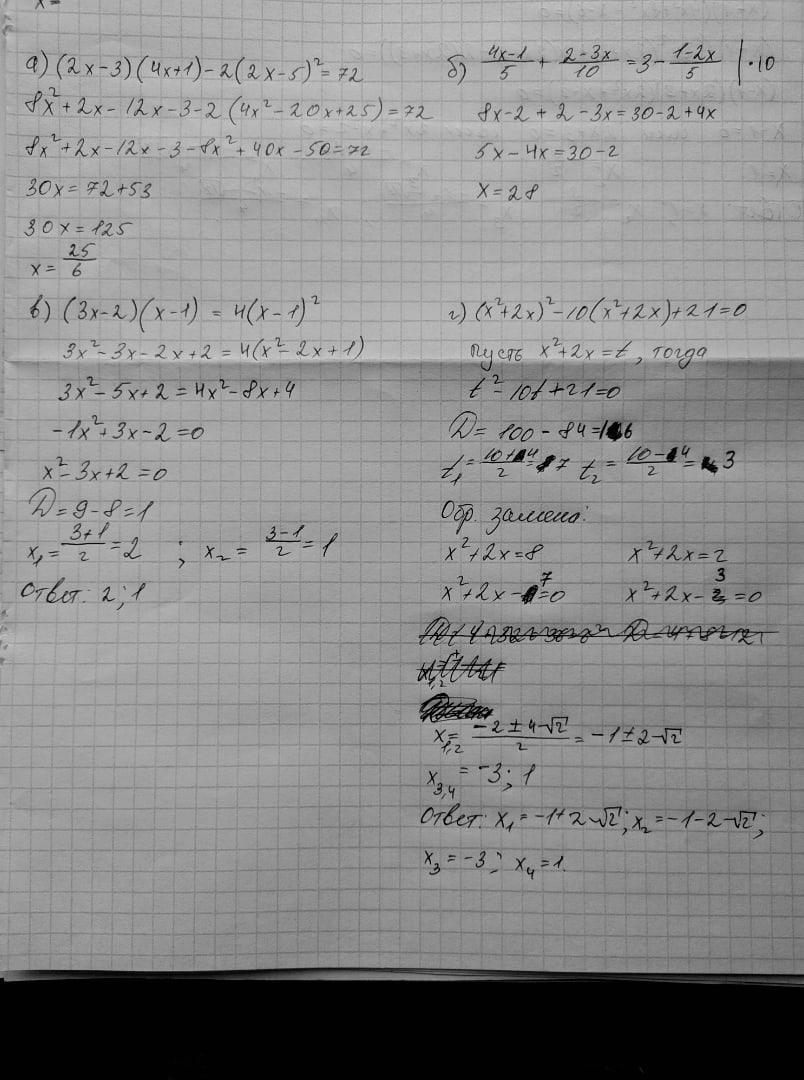 x=
а) (2x-3)(4x+1)-2(2x-5)²=72
8x²+2x-12x-3-2(4x²-20x+25)=72
8x²+2x-12x-3-8x²+40x-50=72
30x=72+53
30x=125
x=25/6
б) (4x-1)/5 + (2-3x)/10 = 3 - (1-2x)/5 | ·10
8x-2+2-3x=30-2+4x
5x-4x=30-2
x=28
в) (3x-2)(x-1) = 4(x-1)²
3x²-3x-2x+2=4(x²-2x+1)
3x²-5x+2=4x²-8x+4
-1x²+3x-2=0
x²-3x+2=0
D=9-8=1
x₁=(3+1)/2=2 ; x₂=(3-1)/2=1
Ответ: 2; 1
г) (x²+2x)²-10(x²+2x)+21=0
Пусть x²+2x=t, тогда
t²-10t+21=0
D=100-84=16
t₁=(10+4)/2=7 t₂=(10-4)/2=3
Обр. замена:
x²+2x=8 x²+2x=2
x²+2x-7=0 x²+2x-3=0
x₁,₂=(-2±4√2)/2=-1±2√2
x₃,₄=-3; 1
Ответ: x₁=-1+2√2; x₂=-1-2√2;
x₃=-3; x₄=1.